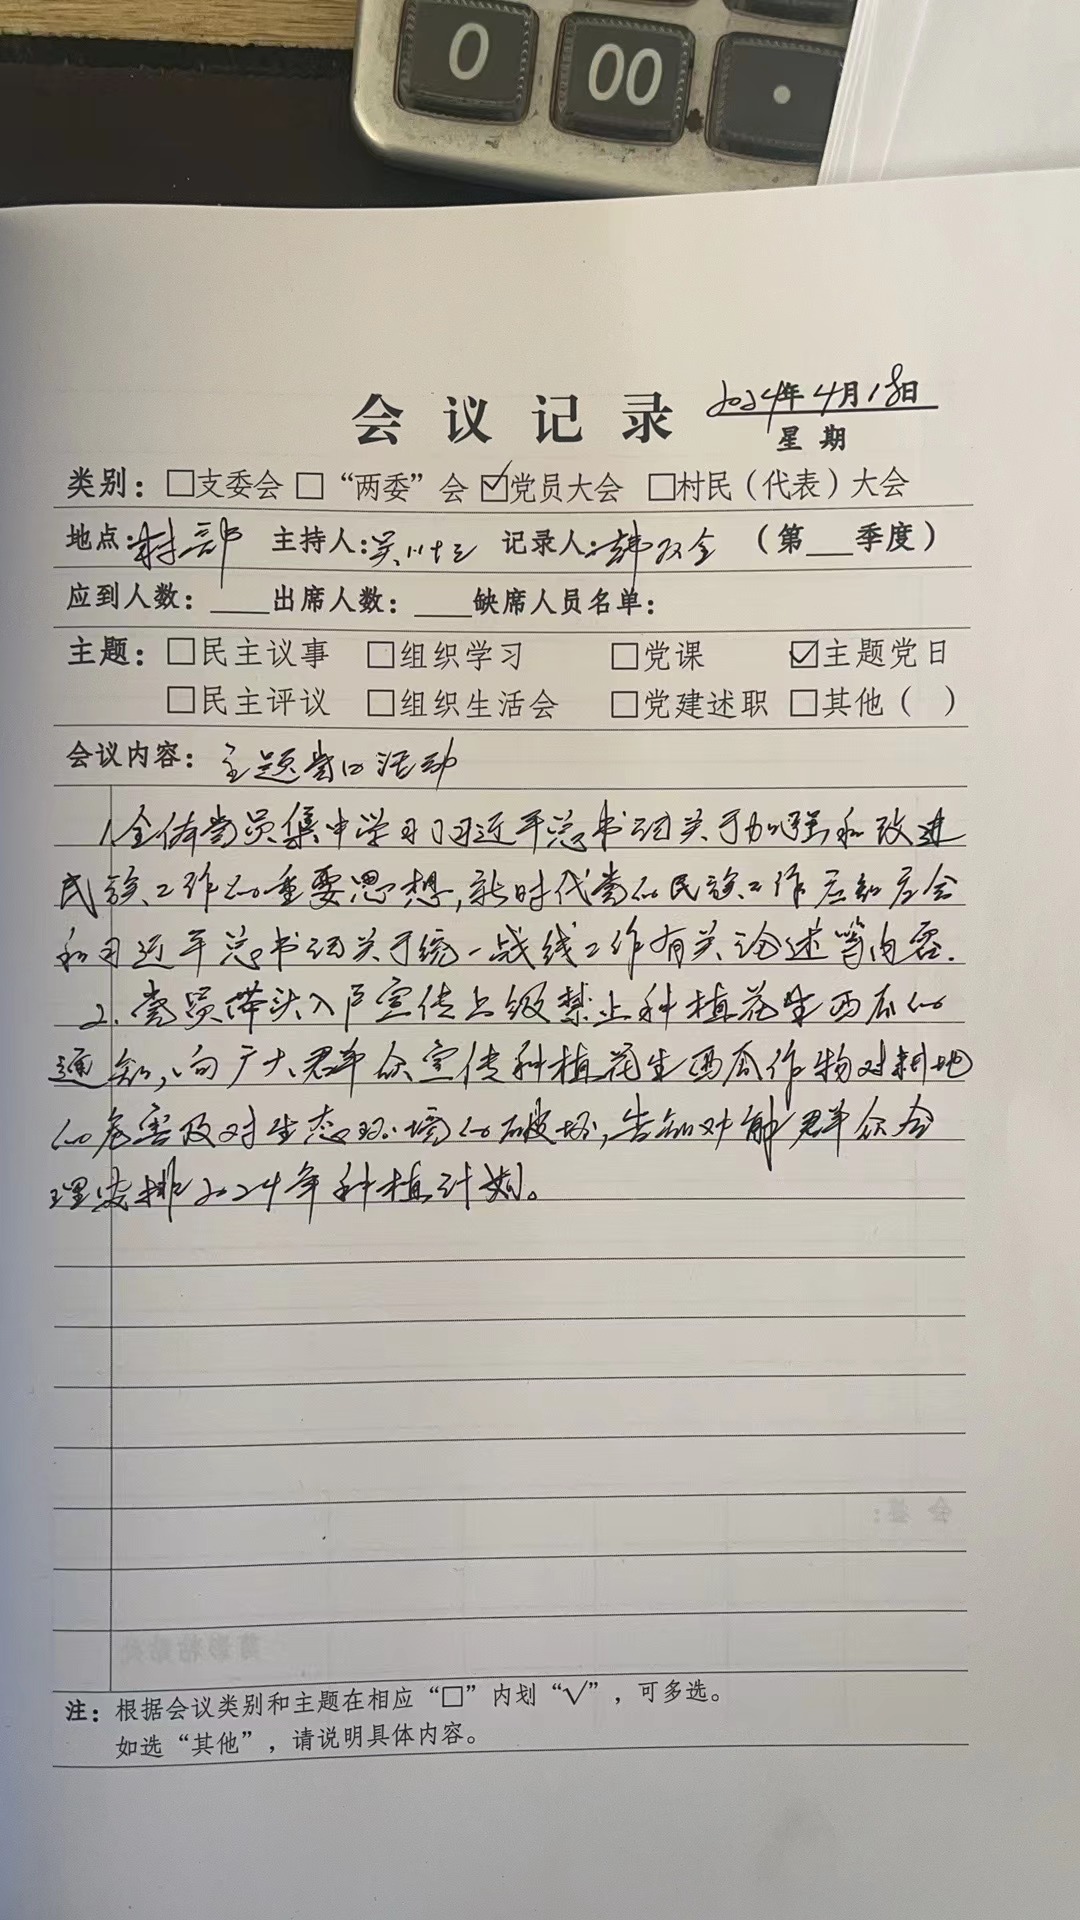 0 00 ·
会议记录 2024年4月18日
星期
类别：□支委会 □“两委”会 ☑党员大会 □村民（代表）大会
地点：村部 主持人：吴 记录人：韩双全 （第___季度）
应到人数：____出席人数：____缺席人员名单：
主题：□民主议事 □组织学习 □党课 ☑主题党日
□民主评议 □组织生活会 □党建述职 □其他（ ）
会议内容：主题党日活动
1.全体党员集中学习习近平总书记关于加强和改进
民族工作的重要思想,新时代党的民族工作应知应会
和习近平总书记关于统一战线工作有关论述等内容.
2.党员带头入户宣传上级禁止种植花生西瓜的
通知,向广大群众宣传种植花生西瓜作物对耕地
的危害及对生态环境的破坏,告知对解群众合
理安排2024年种植计划。
会签：
剪影粘贴处
注：根据会议类别和主题在相应“□”内划“√”，可多选。
如选“其他”，请说明具体内容。